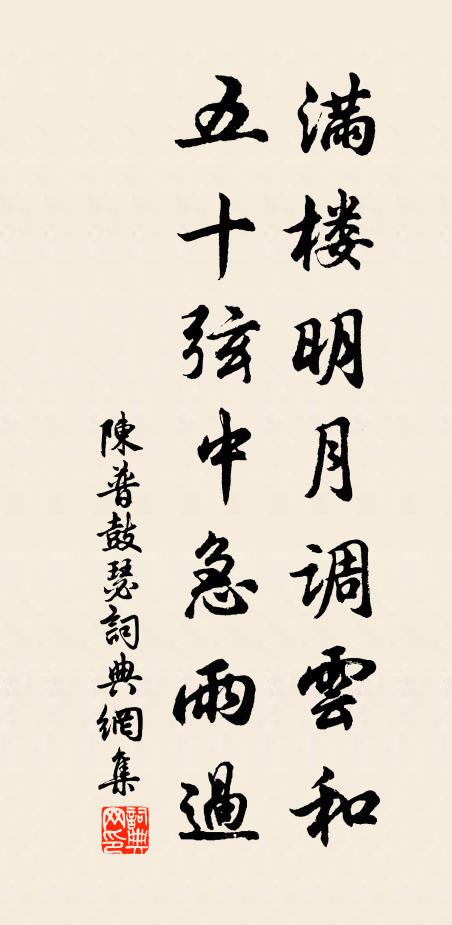 满楼明月调雲和
五十弦中急雨過
陳普鼓瑟詞典網集
詞典网印